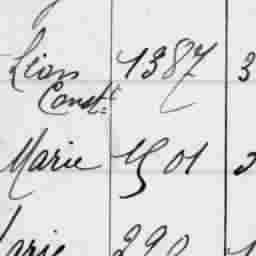 Léon 1387 3
Const.t
Marie 1501 2
Marie 290